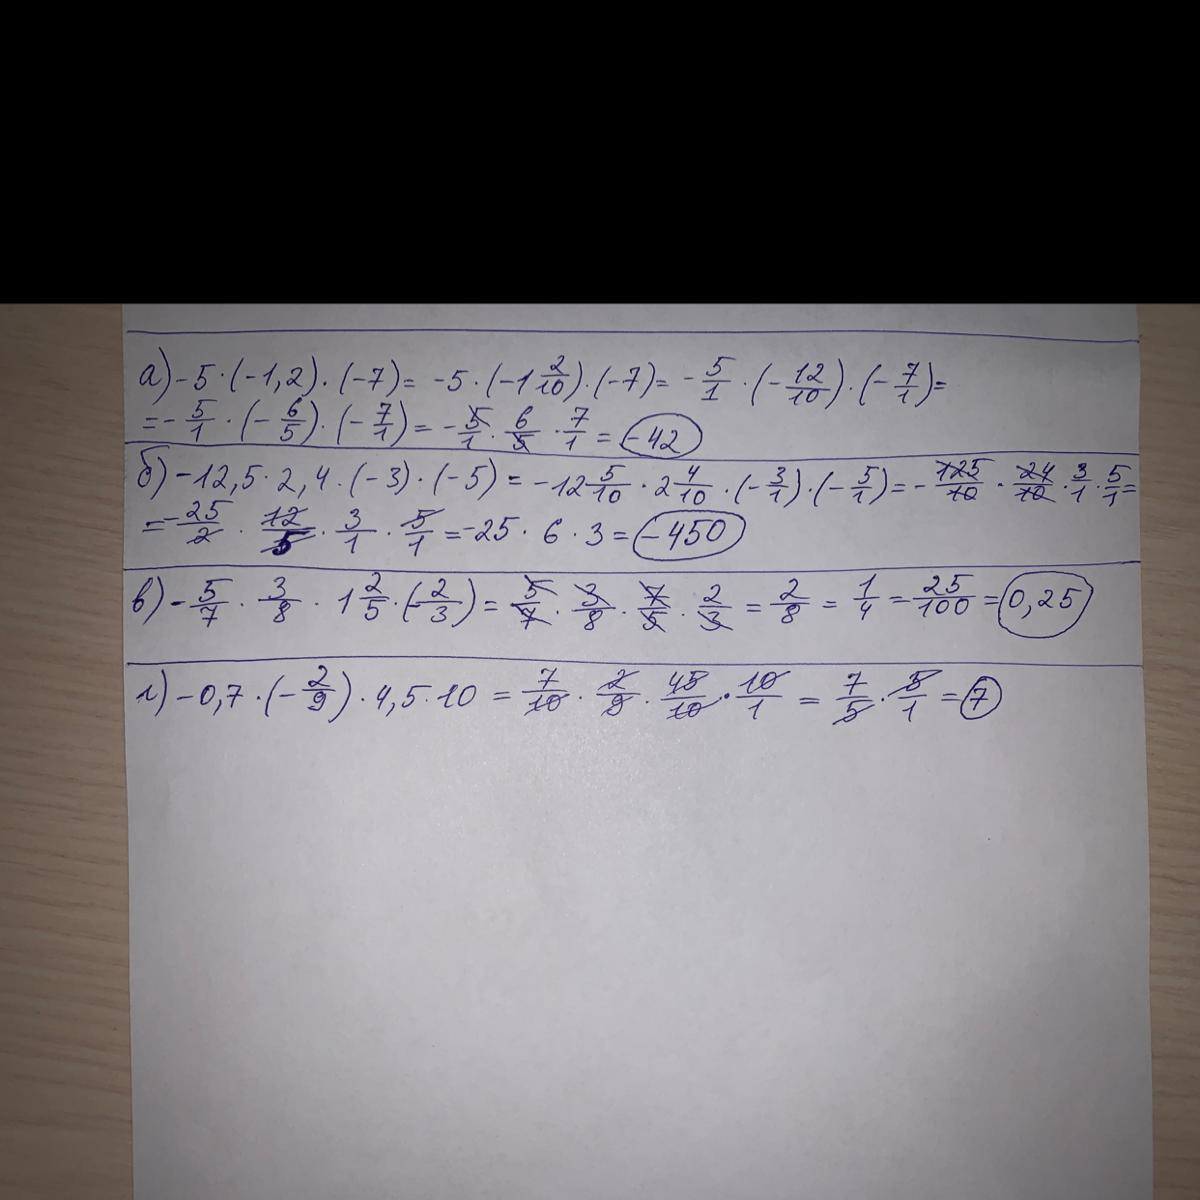 а) -5·(-1,2)·(-7)= -5·(-1 2/10)·(-7)= -5/1·(-12/10)·(-7/1)=
=-5/1·(-6/5)·(-7/1)= -5/1·6/5·7/1=-42
б) -12,5·2,4·(-3)·(-5)= -12 5/10·2 4/10·(-3/1)·(-5/1)=-125/10·24/10·3/1·5/1=
=-25/2·12/5·3/1·5/1=-25·6·3=-450
в) -5/7·3/8·1 2/5·(-2/3)=5/7·3/8·7/5·2/3=2/8=1/4=25/100=0,25
г) -0,7·(-2/9)·4,5·10=7/10·2/9·45/10·10/1=7/5·5/1=7